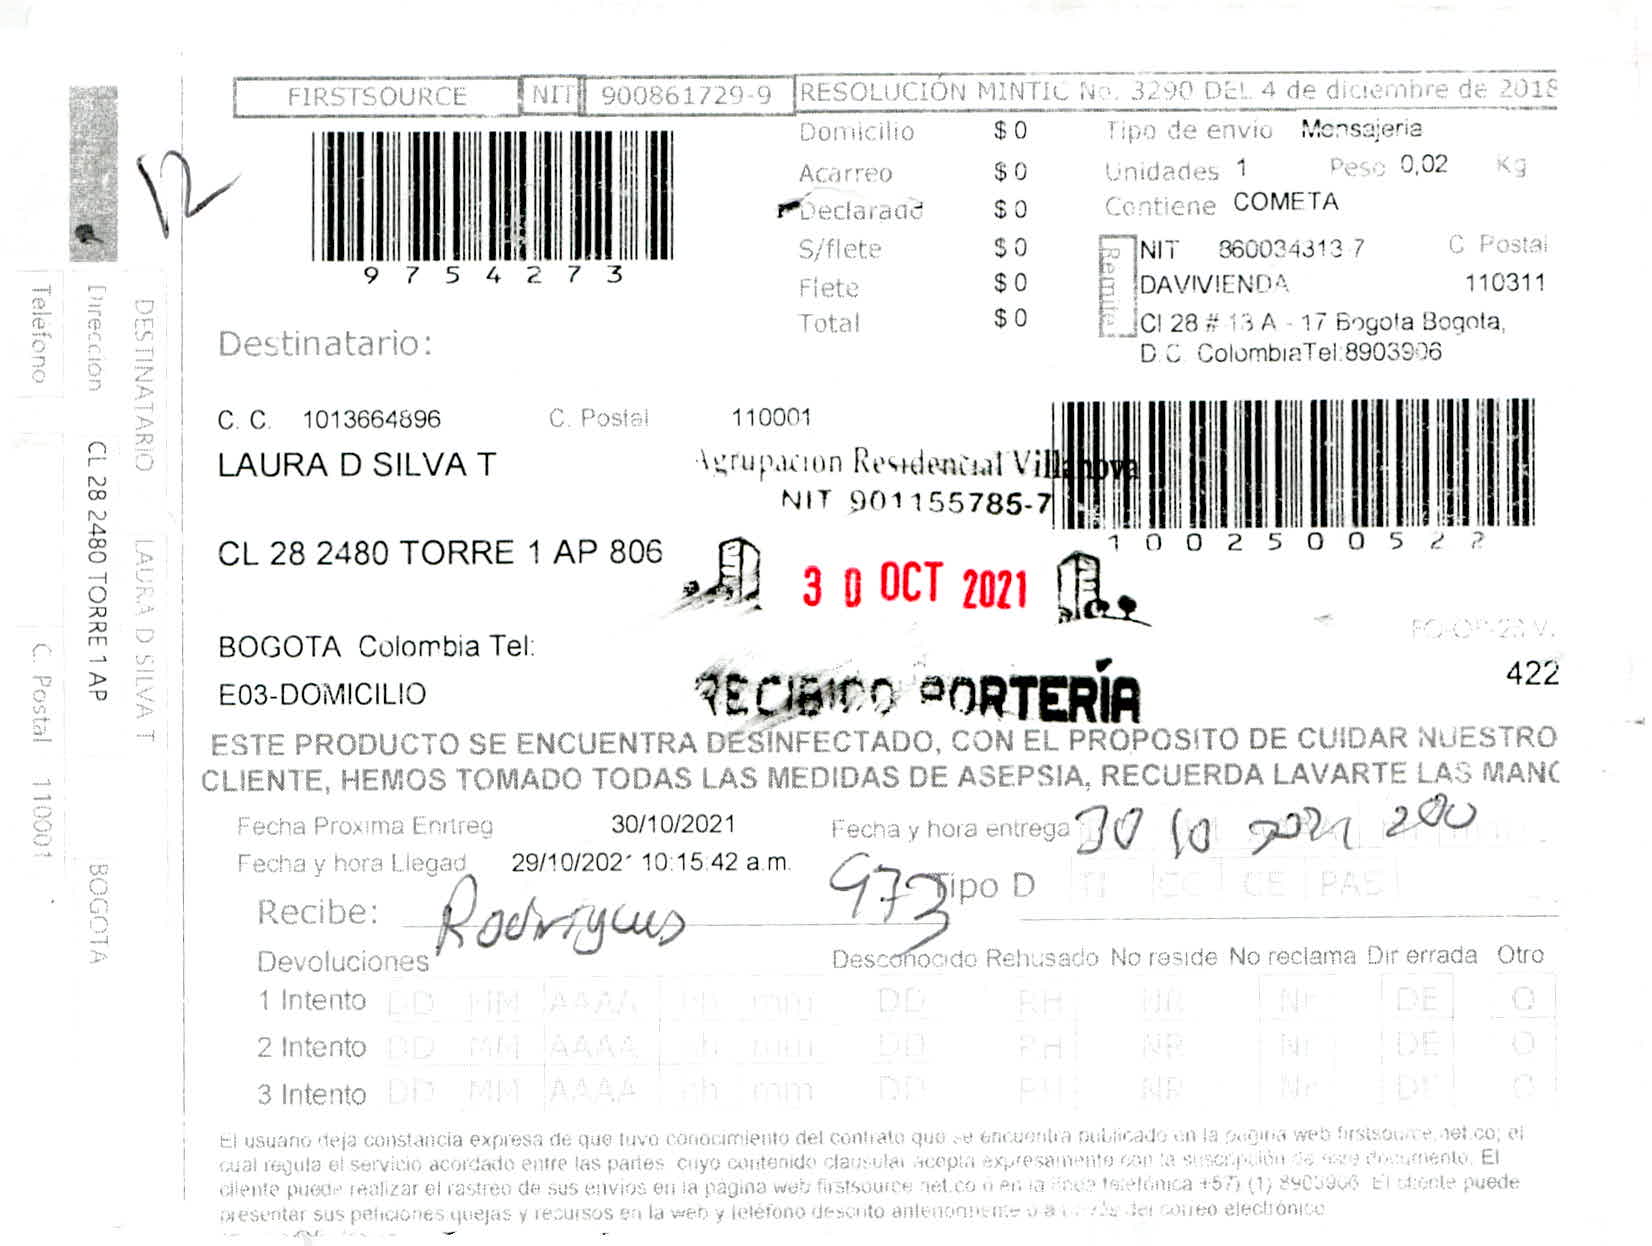 FIRSTSOURCE NIT 900861729-9 RESOLUCIÓN MINTIC No. 3290 DEL 4 de diciembre de 2018
12
9754273
Domicilio $ 0
Acarreo $ 0
Declarado $ 0
S/flete $ 0
Flete $ 0
Total $ 0
Tipo de envio Mensajeria
Unidades 1 Peso 0,02 Kg
Contiene COMETA
Remite
NIT 860034313 7 C Postal
DAVIVIENDA 110311
Cl 28 # 13 A - 17 Bogota Bogota,
D.C. ColombiaTel:8903906
Destinatario:
C. C. 1013664896 C. Postal 110001
LAURA D SILVA T
Agrupacion Residencial Villanova
NIT 901155785-7
1002500522
CL 28 2480 TORRE 1 AP 806
30 OCT 2021
BOGOTA Colombia Tel:
422
E03-DOMICILIO
RECIBIDO PORTERÍA
ESTE PRODUCTO SE ENCUENTRA DESINFECTADO, CON EL PROPOSITO DE CUIDAR NUESTRO
CLIENTE, HEMOS TOMADO TODAS LAS MEDIDAS DE ASEPSIA, RECUERDA LAVARTE LAS MANO
Fecha Proxima Enrtreg 30/10/2021 Fecha y hora entrega 30 10 2021 200
Fecha y hora Llegad 29/10/2021 10:15:42 a.m.
973 Tipo D TI CC CE PAS
Recibe: Rodrigues
Devoluciones Desconocido Rehusado No reside No reclama Dir errada Otro
1 Intento DD MM AAAA hh mm DD RH NR Nr DE O
2 Intento DD MM AAAA hh mm DD RH NR Nr DE O
3 Intento DD MM AAAA hh mm DD RH NR Nr DE O
El usuario deja constancia expresa de que tuvo conocimiento del contrato que se encuentra publicado en la pagina web firstsource.net.co; el
cual regula el servicio acordado entre las partes cuyo contenido clausular acepta expresamente con la suscripción de este documento. El
cliente puede realizar el rastreo de sus envios en la pagina web firstsource.net.co o en la linea telefónica +57) (1) 8903906 El cliente puede
presentar sus peticiones quejas y recursos en la web y teléfono descrito del correo electrónico
DESTINATARIO LAURA D SILVA T
Direccion CL 28 2480 TORRE 1 AP BOGOTA
Teléfono C. Postal 110001